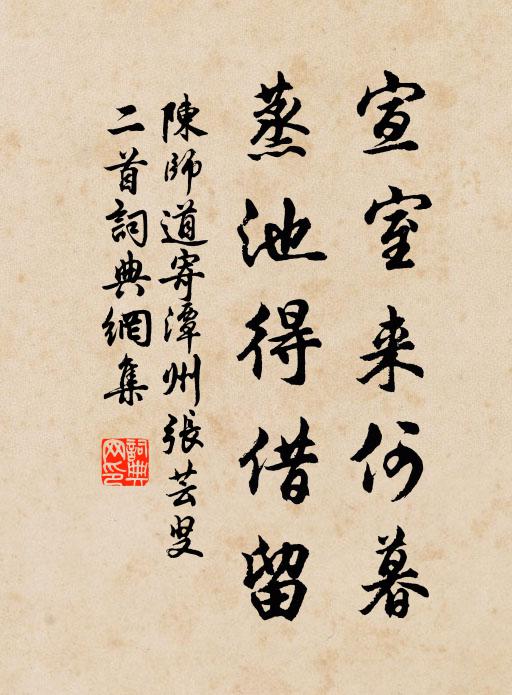 宣室来何暮
蒸池得借留
陳師道寄潭州張芸叟
二首詞典網集
詞典網印